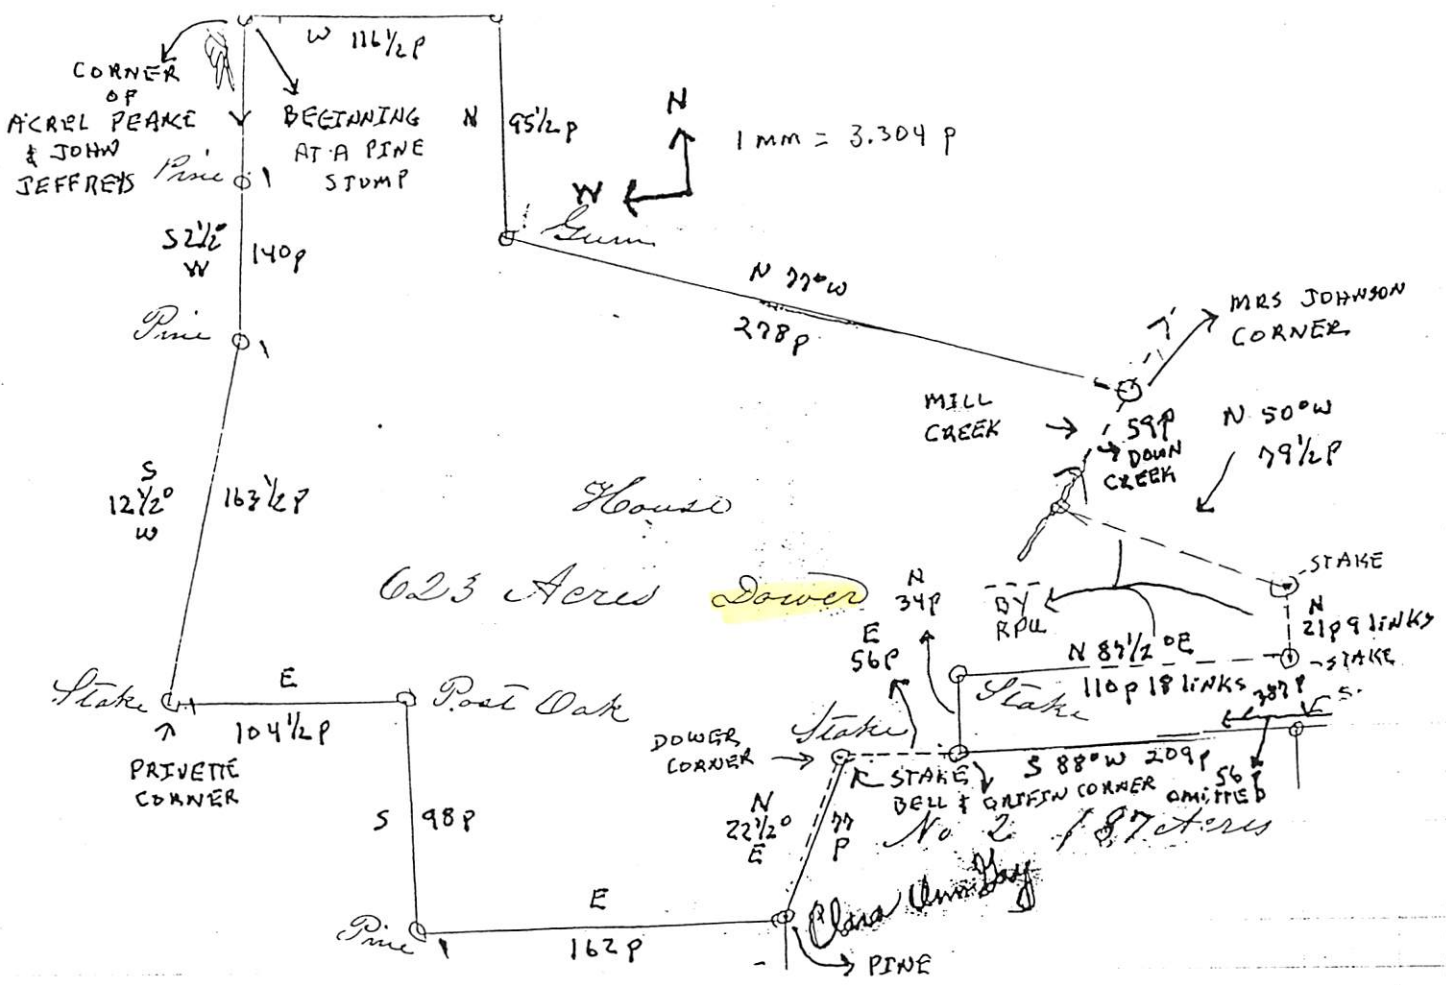 W 116 1/2 P
CORNER
OF
ACREL PEAKE
& JOHN
JEFFREYS
BEGINNING
AT A PINE
STUMP
N 95 1/2 P
N
W
1 mm = 3.304 P
Pine
S 2 1/2°
W
140 P
Gum
Pine
N 77° W
278 P
MRS JOHNSON
CORNER
MILL
CREEK
59 P
DOWN
CREEK
N 50° W
79 1/2 P
S
12 1/2°
W
163 1/2 P
House
623 Acres Dower
N
34 P
E
56 P
BY
RPU
STAKE
N
21 P 9 LINKS
STAKE
N 87 1/2 °E
110 P 18 LINKS
387 P
S.
Stake
E
104 1/2 P
Post Oak
PRIVETTE
CORNER
Stake
Stake
DOWER
CORNER
STAKE
BELL & GRIFFIN CORNER
S 88° W 209 P
56 P
OMITTED
S 98 P
N
22 1/2°
E
77
P
No 2 187 Acres
Clara Ann Gay
Pine
E
162 P
PINE